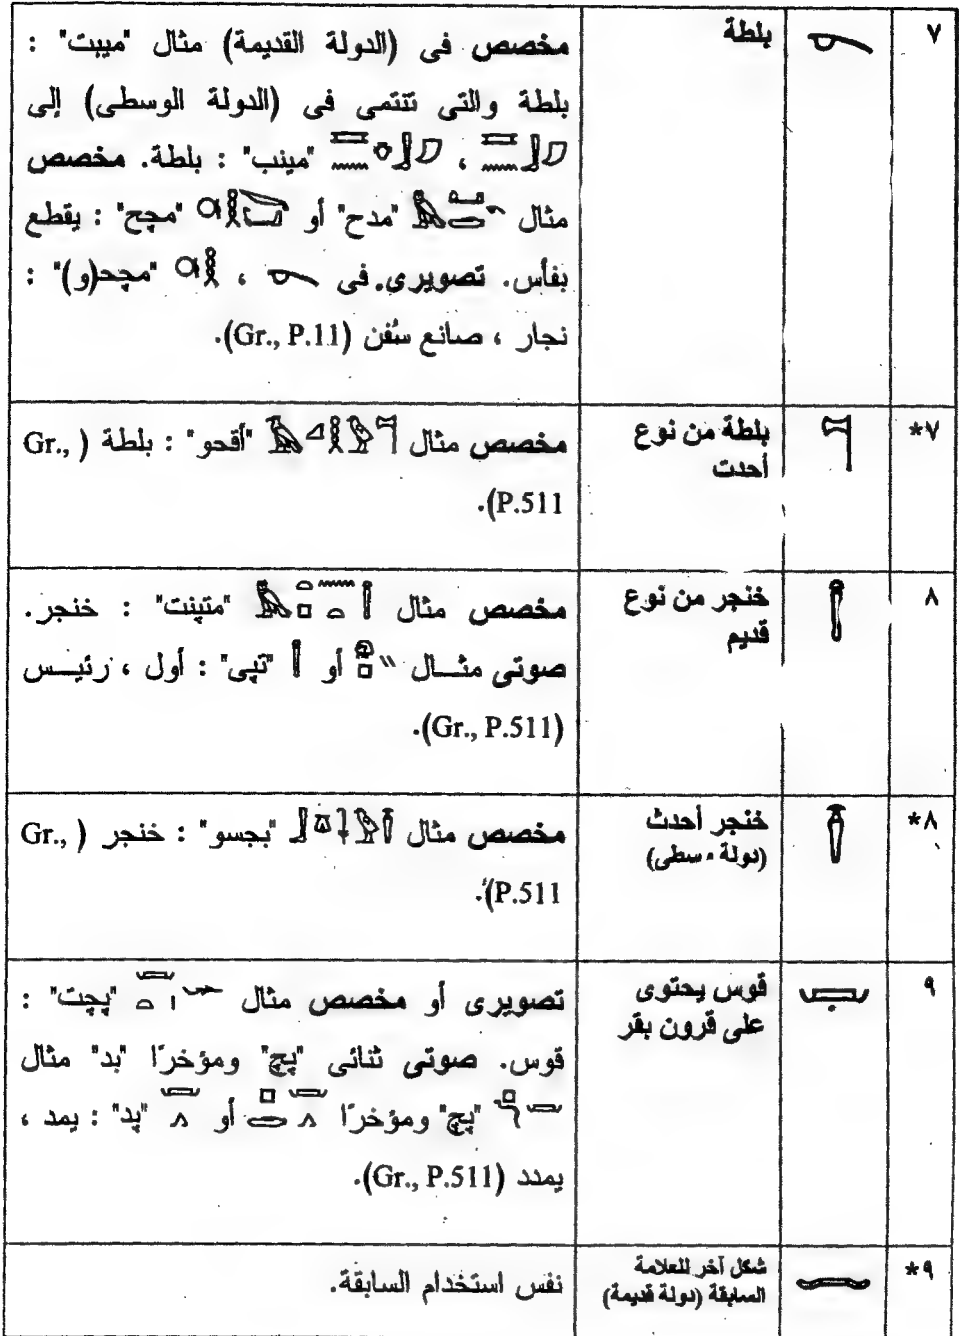 ٧
بلطة
مخصص فى (الدولة القديمة) مثال "ميبت" :
بلطة والتى تنتمى فى (الدولة الوسطى) إلى
، "مينب" : بلطة. مخصص
مثال "مدح" أو "مچح" : يقطع
بفأس. تصويرى فى ، "مچحـ(و)" :
نجار ، صانع سُفن (Gr., P.11).
٧*
بلطة من نوع
أحدث
مخصص مثال "أقحو" : بلطة (Gr.,
P.511).
٨
خنجر من نوع
قديم
مخصص مثال "متپنت" : خنجر.
صوتى مثـال أو "تپى" : أول ، رئيـس
(Gr., P.511).
٨*
خنجر أحدث
(دولة وسطى)
مخصص مثال "بجسو" : خنجر (Gr.,
P.511).
٩
قوس يحتوى
على قرون بقر
تصويرى أو مخصص مثال "پچت" :
قوس. صوتى ثنائى "پچ" ومؤخرًا "بد" مثال
"پچ" ومؤخرًا أو "پد" : يمد ،
يمدد (Gr., P.511).
٩*
شكل آخر للعلامة
السابقة (دولة قديمة)
نفس استخدام السابقة.